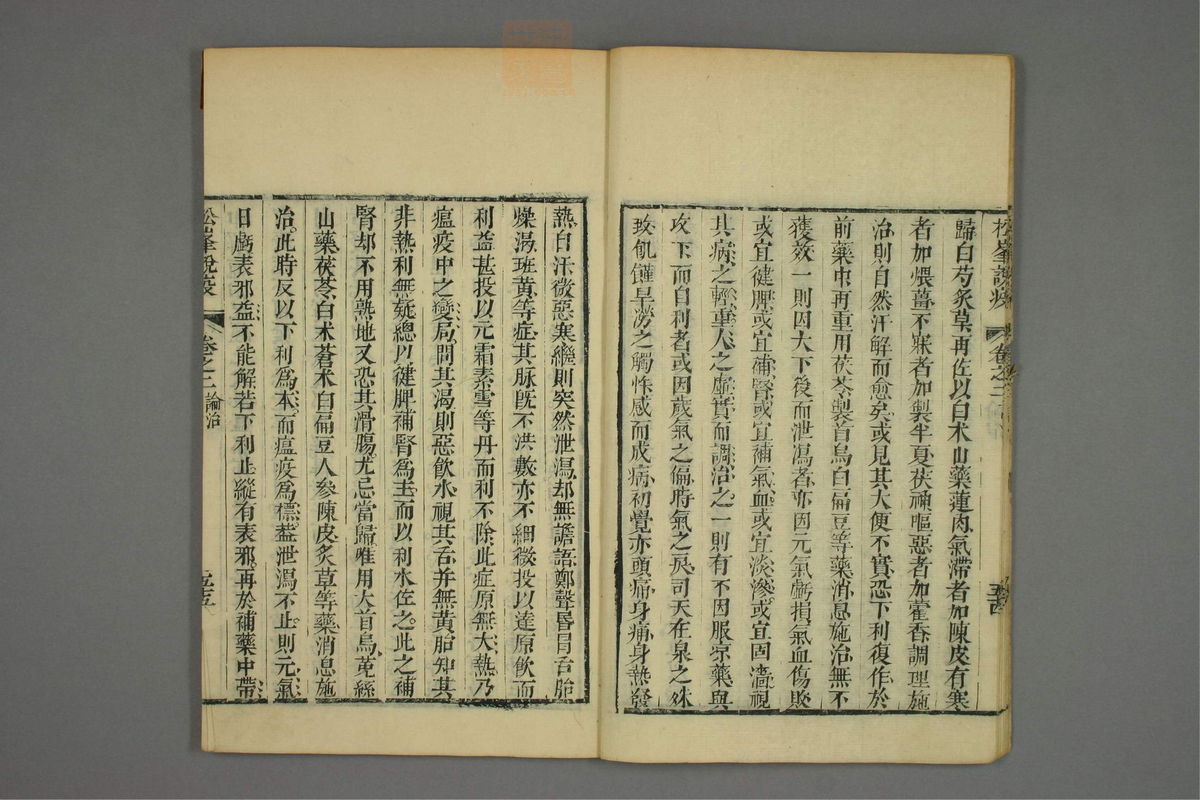 松峯說疫 卷之二 五十四
歸白芍炙草再佐以白术山藥蓮肉氣滯者加陳皮有寒
者加煨薑不寐者加製半夏茯神嘔惡者加藿香調理施
治則自然汗解而愈矣或見其大便不實恐下利復作於
前藥中再重用茯苓製首烏白扁豆等藥消息施治無不
獲效一則因大下後而泄瀉者亦因元氣虧損氣血傷敗
或宜健脾或宜補腎或宜補氣血或宜淡滲或宜固濇視
其病之輕重人之虛實而調治之一則有不因服凉藥與
攻下而自利者或因歲氣之偏時氣之戾司天在泉之殊
致飢饉旱澇之觸忤感而成病初覺亦頭痛身痛身熱發
熱自汗微惡寒繼則突然泄瀉却無譫語鄭聲昏冒舌胎
燥渴班黃等症其脉旣不洪數亦不細微投以達原飲而
利益甚投以元霜素雪等丹而利不除此症原無大熱乃
瘟疫中之變局問其渴則惡飲水視其舌并無黃胎知其
非熱利無疑總以健脾補腎爲主而以利水佐之此之補
腎却不用熟地又恐其滑腸尤忌當歸唯用大首烏菟絲
山藥茯苓白术蒼术白扁豆人參陳皮炙草等藥消息施
治此時反以下利爲本而瘟疫爲標蓋泄瀉不止則元氣
日虧表邪益不能解若下利止縱有表邪再於補藥中帶
松峯說疫 卷之二 論治 五十五